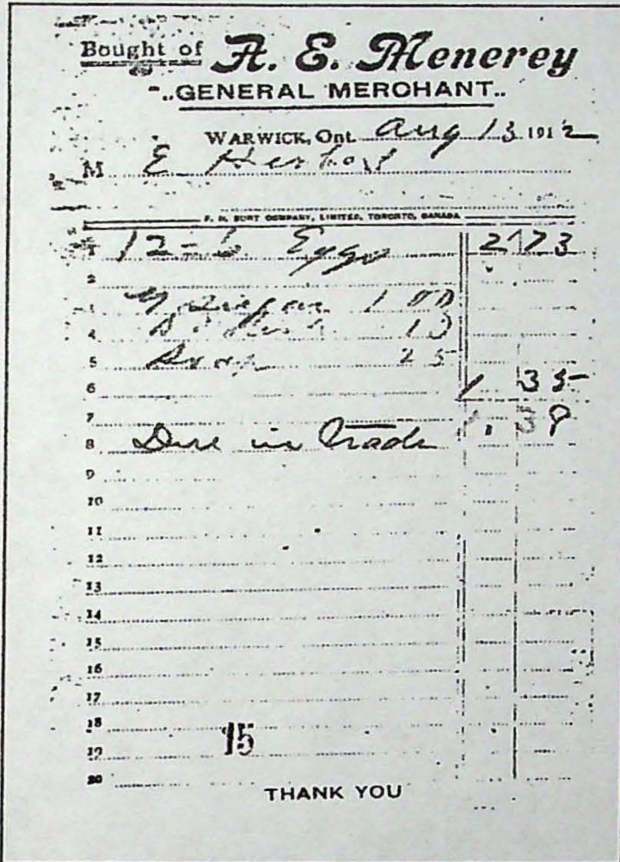 Bought of A. E. Menerey
..GENERAL MERCHANT..
WARWICK, Ont. Aug 13 1912
M E
F. N. BURT COMPANY, LIMITED, TORONTO, CANADA
1 12-6 Eggs 2 73
2
3 1 00
4 13
5 Soap 25
6 1 35
7
8 Due in Trade 1.38
9
10
11
12
13
14
15
16
17
18
19
20
15
THANK YOU